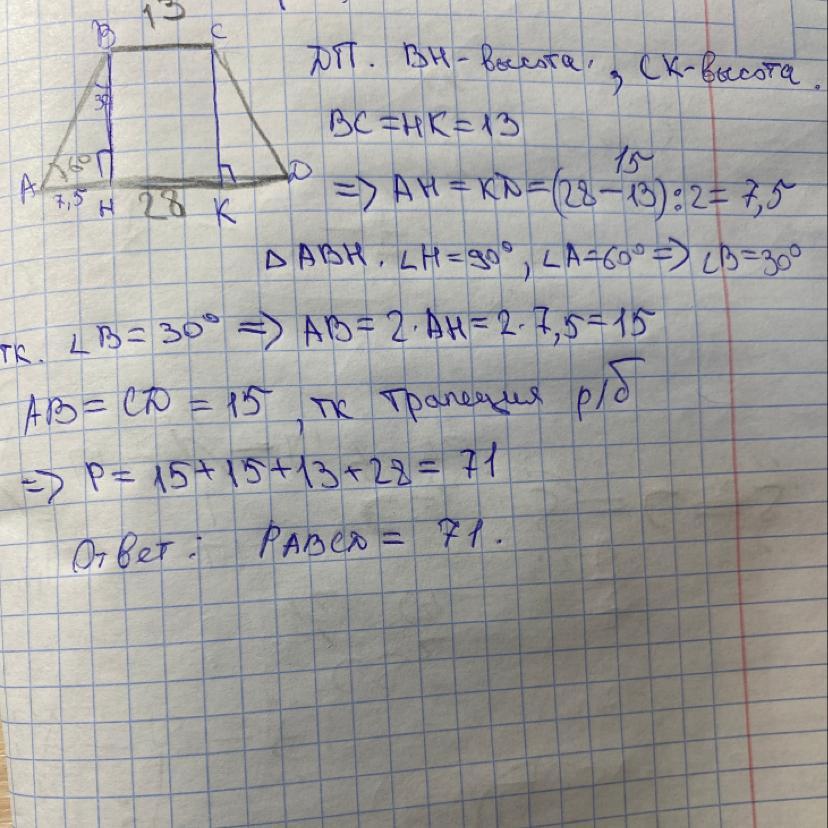 13
B C
30°
60°
A D
7,5 H 28 K
ДП. BH-высота, CK-высота.
BC=HK=13
15
=> AH=KD=(28-13):2=7,5
Δ ABH. ∠H=90°, ∠A=60° => ∠B=30°
тк. ∠B=30° => AB=2·AH=2·7,5=15
AB=CD=15, тк трапеция р/б
=> P=15+15+13+28=71
Ответ: PABCD=71.